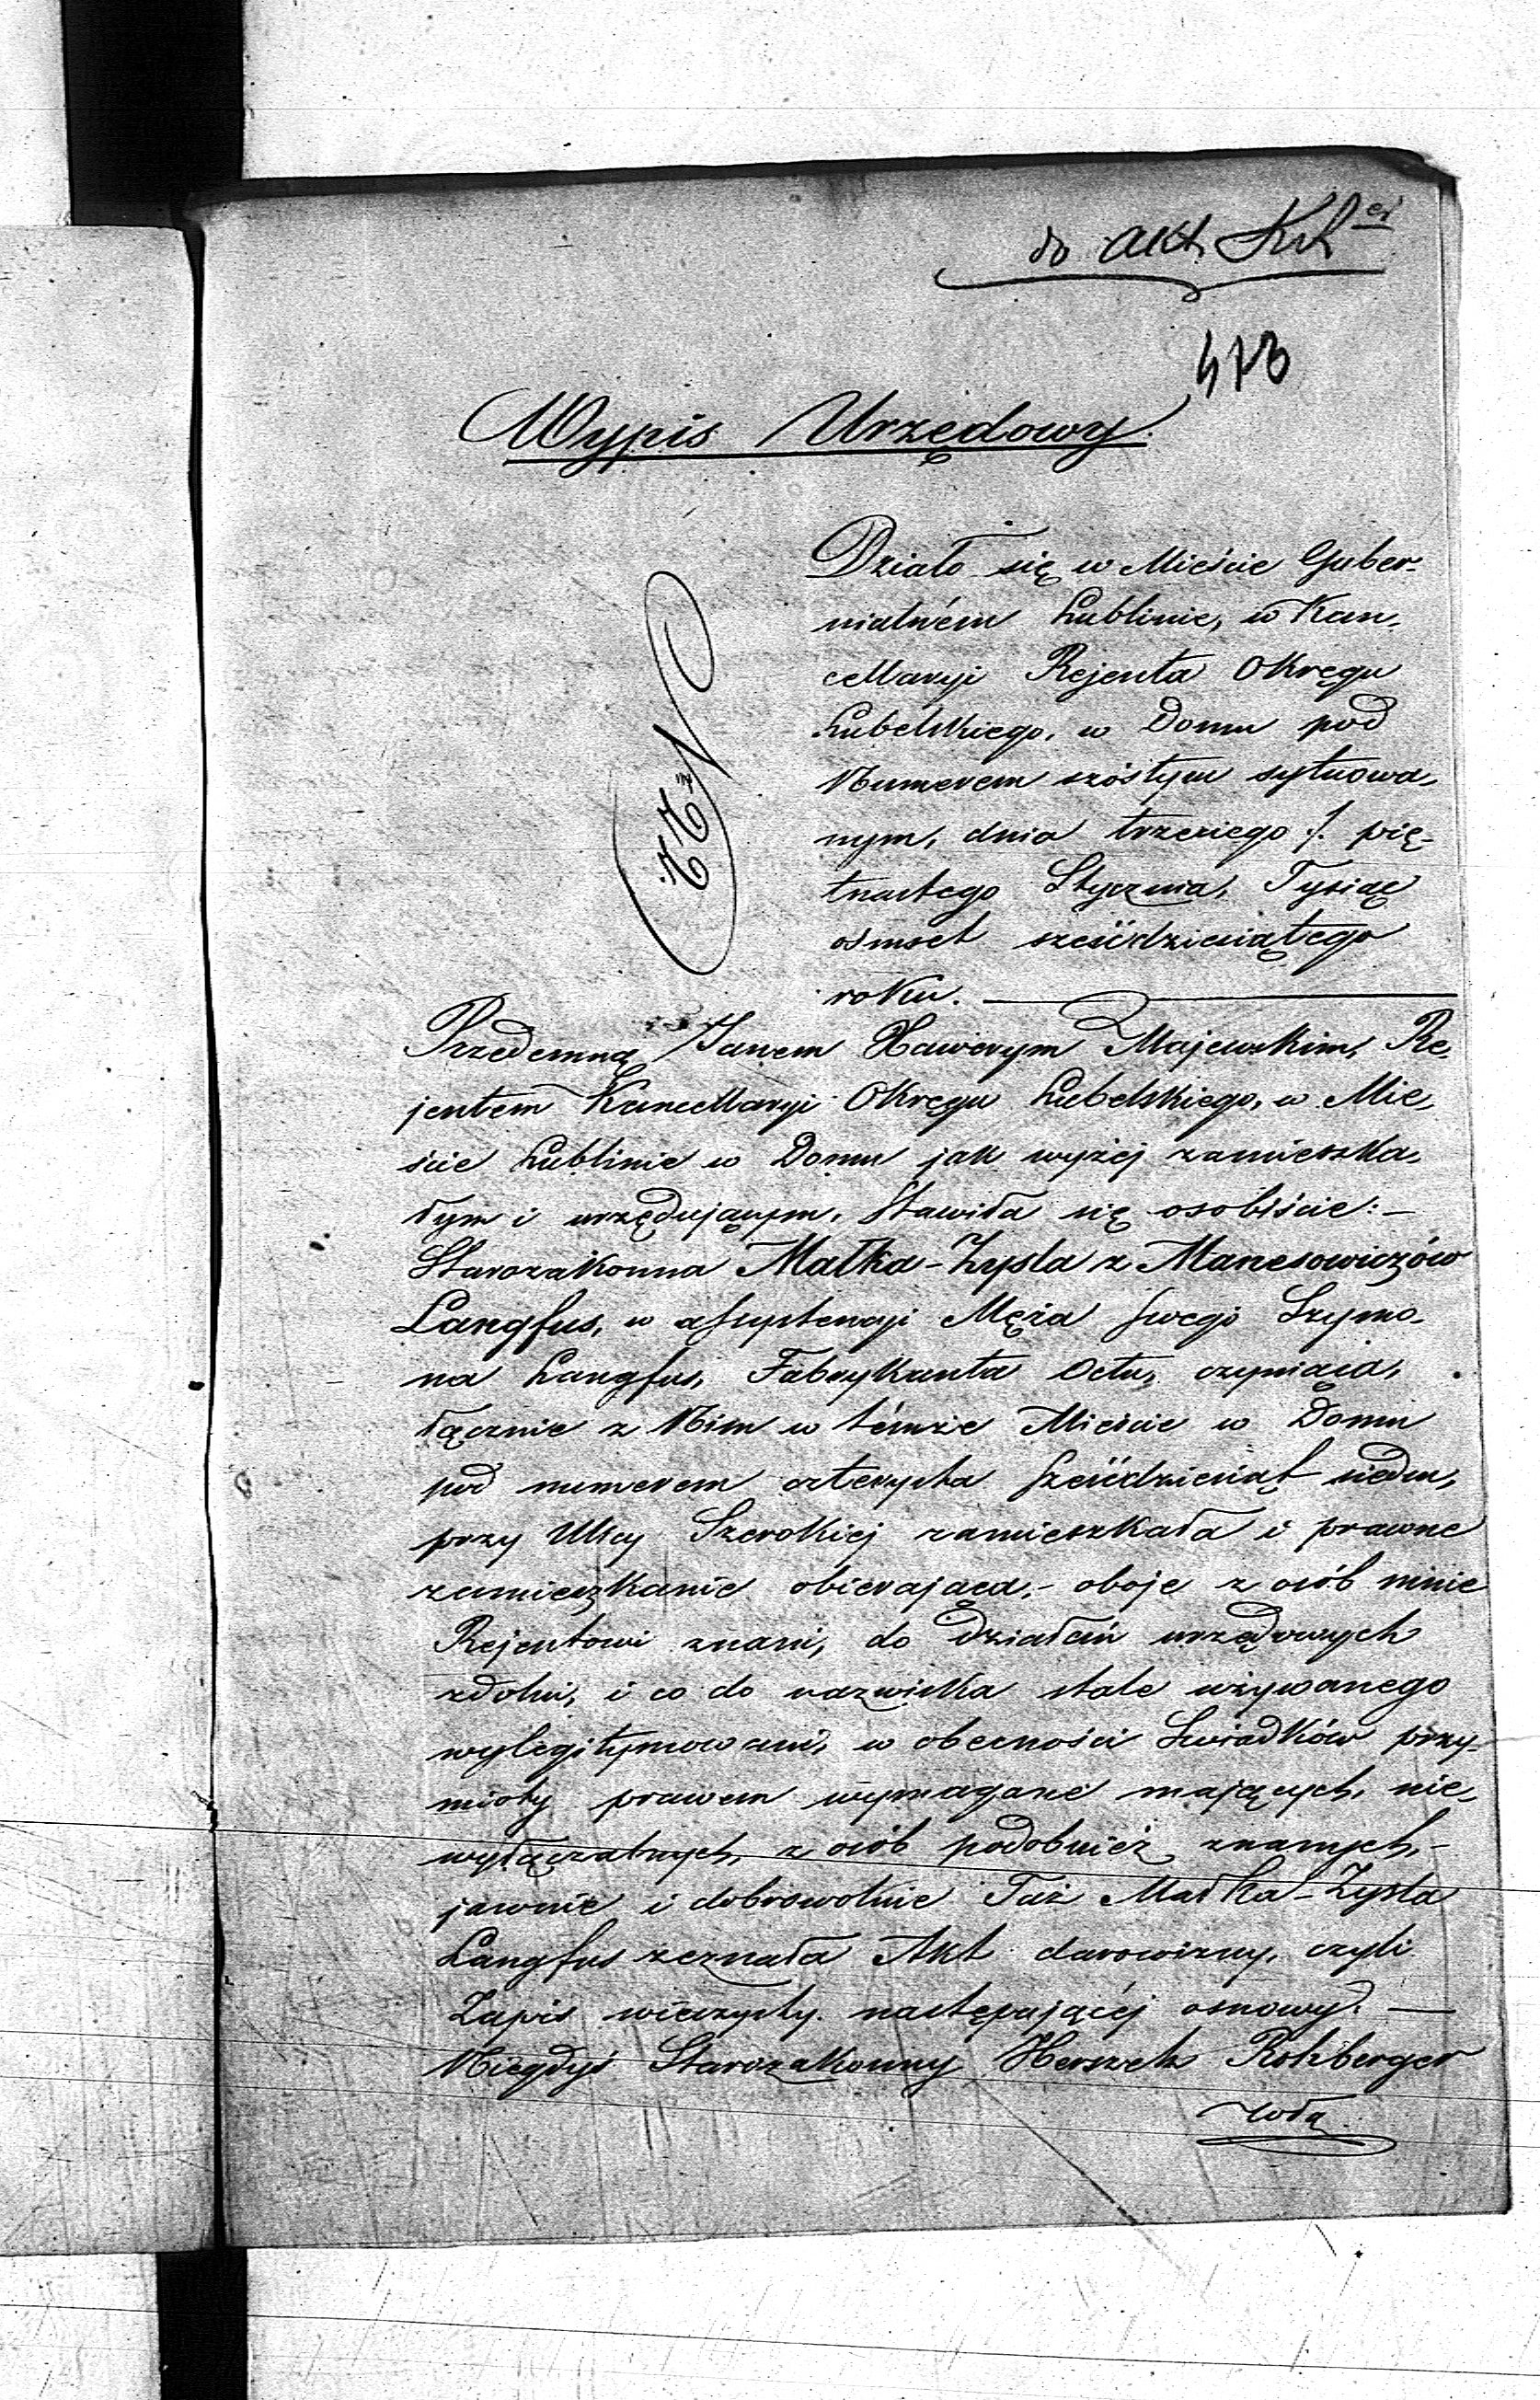 do akt
473
Wypis Urzędowy
Działo się w Mieście Guber-
nialném Lublinie, w Kan-
cellaryi Rejenta Okręgu
Lubelskiego, w Domu pod
Numerem szóstym sytuowa-
nym, dnia trzeciego /. pię-
tnastego Stycznia, Tysiąc
ośmset sześćdziesiątego
roku.
N 22
Przedemną Janem Xawerym Majewskim, Re-
jentem Kancellaryi Okręgu Lubelskiego, w Mie-
ście Lublinie w Domu jak wyżej zamieszka-
łym i urzędującym, Stawiła się osobiście: -
Starozakonna Małka-Zysla z Manesowiczów
Langfus, w assystencyi Męża swego Szymo-
na Langfus, Fabrykanta Octu, czyniąca,
łącznie z Nim w témże Mieście w Domu
pod numerem czterysta sześćdziesiąt siedm,
przy Ulicy Szerokiej zamieszkała i prawne
zamieszkanie obierająca, - oboje z osób mnie
Rejentowi znani, do działań urzędowych
zdolni, i co do nazwiska stale używanego
wylegitymowani, w obecności Świadków przy-
mioty prawem wymagane mających, nie-
wyłączalnych, z osób podobnież znanych, -
jawnie i dobrowolnie Taż Małka-Zysla
Langfus zeznała Akt darowizny, czyli
Zapis wieczysty następującéj osnowy. —
Niegdyś Starozakonny Herszek Rotberger